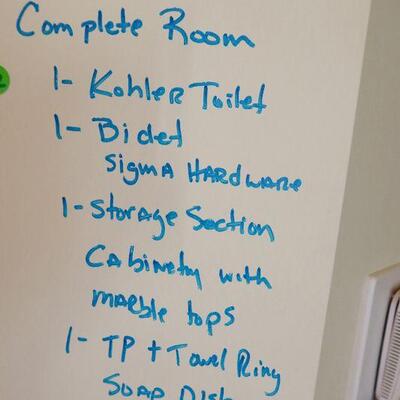 Complete Room
1- Kohler Toilet
1- Bidet
Sigma Hardware
1- Storage Section
Cabinety with
marble tops
1- TP + Towel Ring
Soap Dish